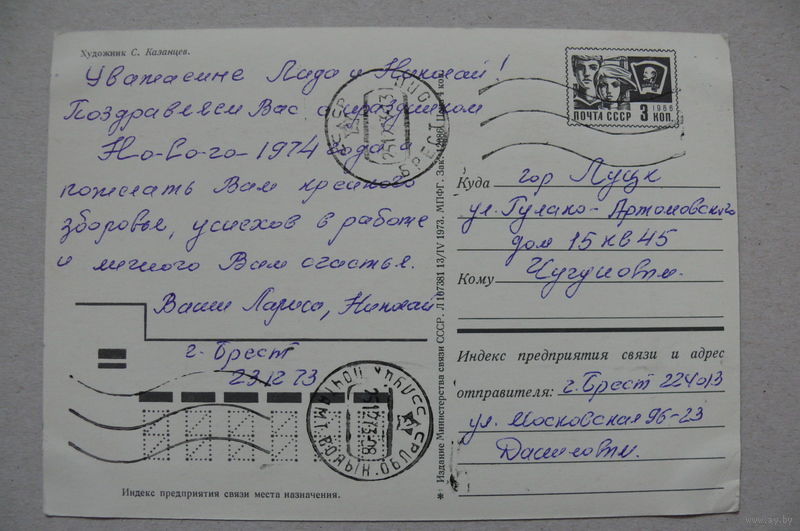 Художник С. Казанцев.
Уважаемые Лада и Николай!
Поздравляем Вас с праздником
Но-во-го-1974 года и
пожелать Вам крепкого
здоровья, успехов в работе
и личного Вам счастья.
Ваши Лариса, Николай
г. Брест
23.12.73
Индекс предприятия связи места назначения.
* Издание Министерства связи СССР. Л 107381 13/IV 1973. МПФГ. Зак. Цена 4 коп.
1966
ПОЧТА СССР 3 КОП.
БРЕСТ
ЛУЦК
ПОЧТАМТ
Куда гор Луцк
ул. Гулако-Артомовского
дом 15 кв 45
Кому
Индекс предприятия связи и адрес
отправителя: г. Брест 224013
ул. Московская 96-23
www.ay.by